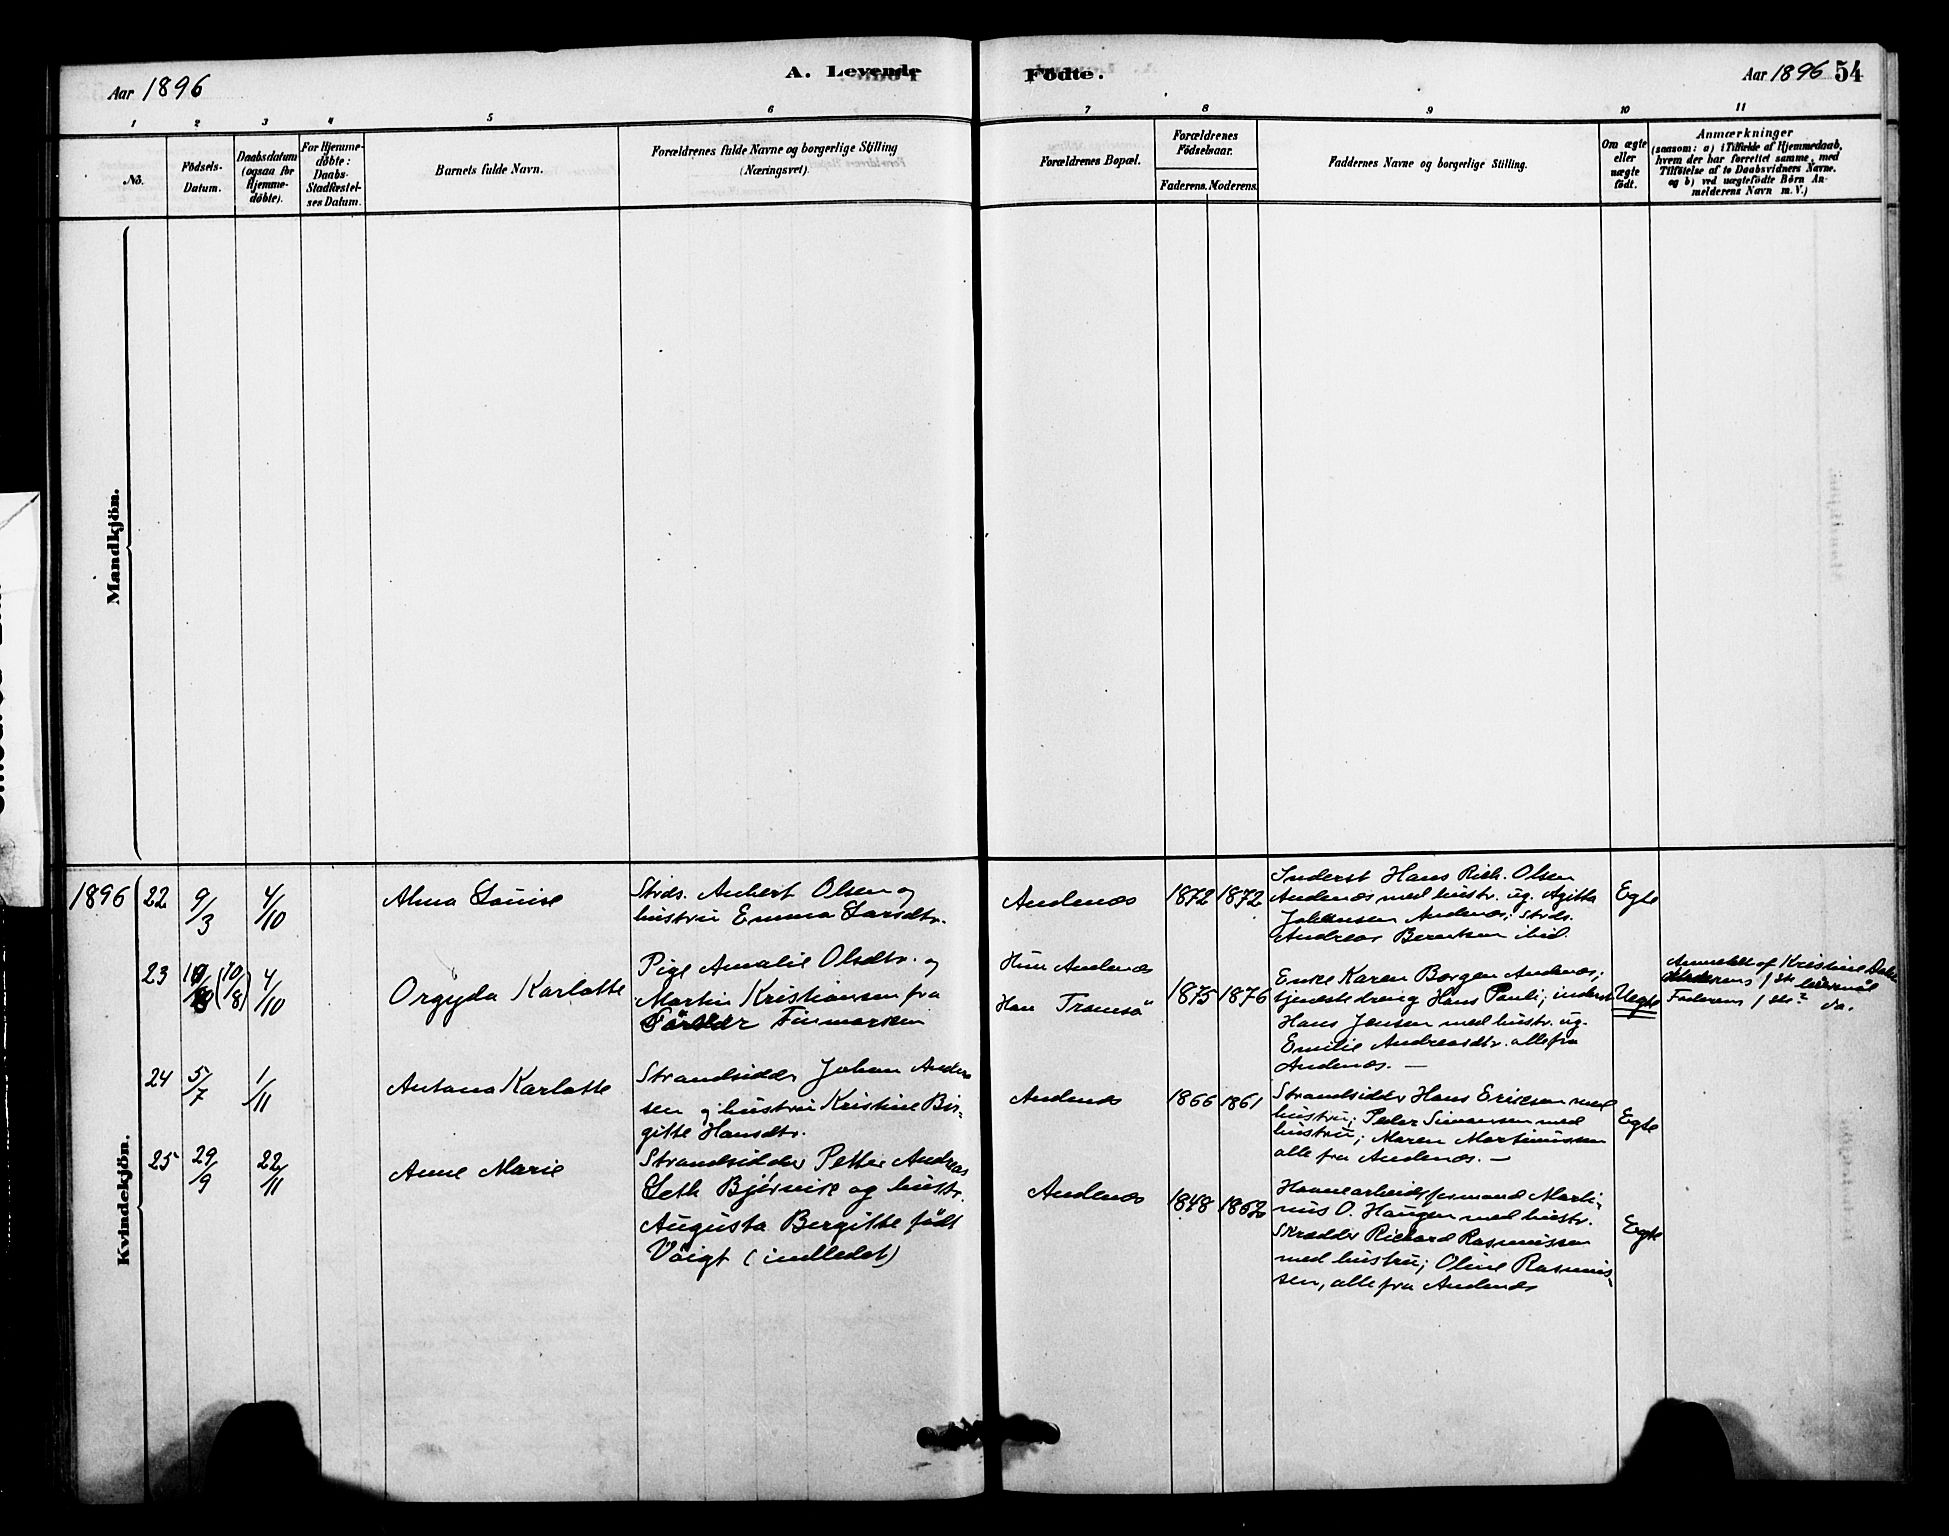 Aar 1896
A. Levende
Födte.
Aar 1896 54
1 2 3 4 5 6 7 8 9 10 11
No.
Födsels-
Datum.
Daabsdatum
(ogsaa for
Hjemme-
døbte).
For Hjemme-
døbte:
Daabs-
Stadfæstel-
ses Datum.
Barnets fulde Navn.
Forældrenes fulde Navne og borgerlige Stilling
(Næringsvei).
Forældrenes Bopæl.
Forældrenes
Födselsaar.
Faderens. Moderens.
Faddernes Navne og borgerlige Stilling.
Om ægte
eller
uægte
født.
Anmærkninger
(saasom: a) i Tilfælde af Hjemmedaab,
hvem der har forrettet samme, med
Tilføielse af to Daabsvidners Navne,
og b) ved uægtefødte Börn An-
melderens Navn m. V.)
Mandkjön.
Kvindekjön.
1896 22 9/3 4/10
Alma Louise
Strds. Anbert Olsen og
hustru Emma Larsdtr.
Andenæs
1872 1872
Inderst Hans Rich. Olsen
Andenæs med hustr. ug. Agitta
Johansen Andenæs; Strds.
Andreas Berntsen ibid.
Egte
23 (10/8) 4/10
Orgyda Karlotte
Pige Amalie Olsdtr. og
Martin Kristiansen fra
Finmarken
Hun Andenæs
Han Tromsö
1875 1876
Enke Karen Borgen Andenæs;
tjenestedreng Hans Pauli; inderst
Hans Jensen med hustr. ug.
Emilie Andreasdtr. alle fra
Andenæs. —
Uegte
Anmeldt af Kristine
Moderens 1ste leiermaal
Faderens 1ste do.
24 5/7 1/11
Antana Karlotte
Strandsidder Johan Ander
sen og hustru Kristine Bir-
gitte Hansdtr.
Andenæs
1866 1861
Strandsidder Hans Eriksen med
hustru; Peder Simonsen med
hustru; Maren Martinussen
alle fra Andenæs. —
Egte
25 29/9 22/11
Anne Marie
Strandsidder Petter Andreas
Seth Bjervik og hustr.
Augusta Bergitte født
Voigt (indledet)
Andenæs
1848 1852
Havnearbeidsformand Marti-
nus O. Haugen med hustr.
Skrædder Richard Rasmussen
med hustru; Oline Rasmus-
sen, alle fra Andenæs
Egte